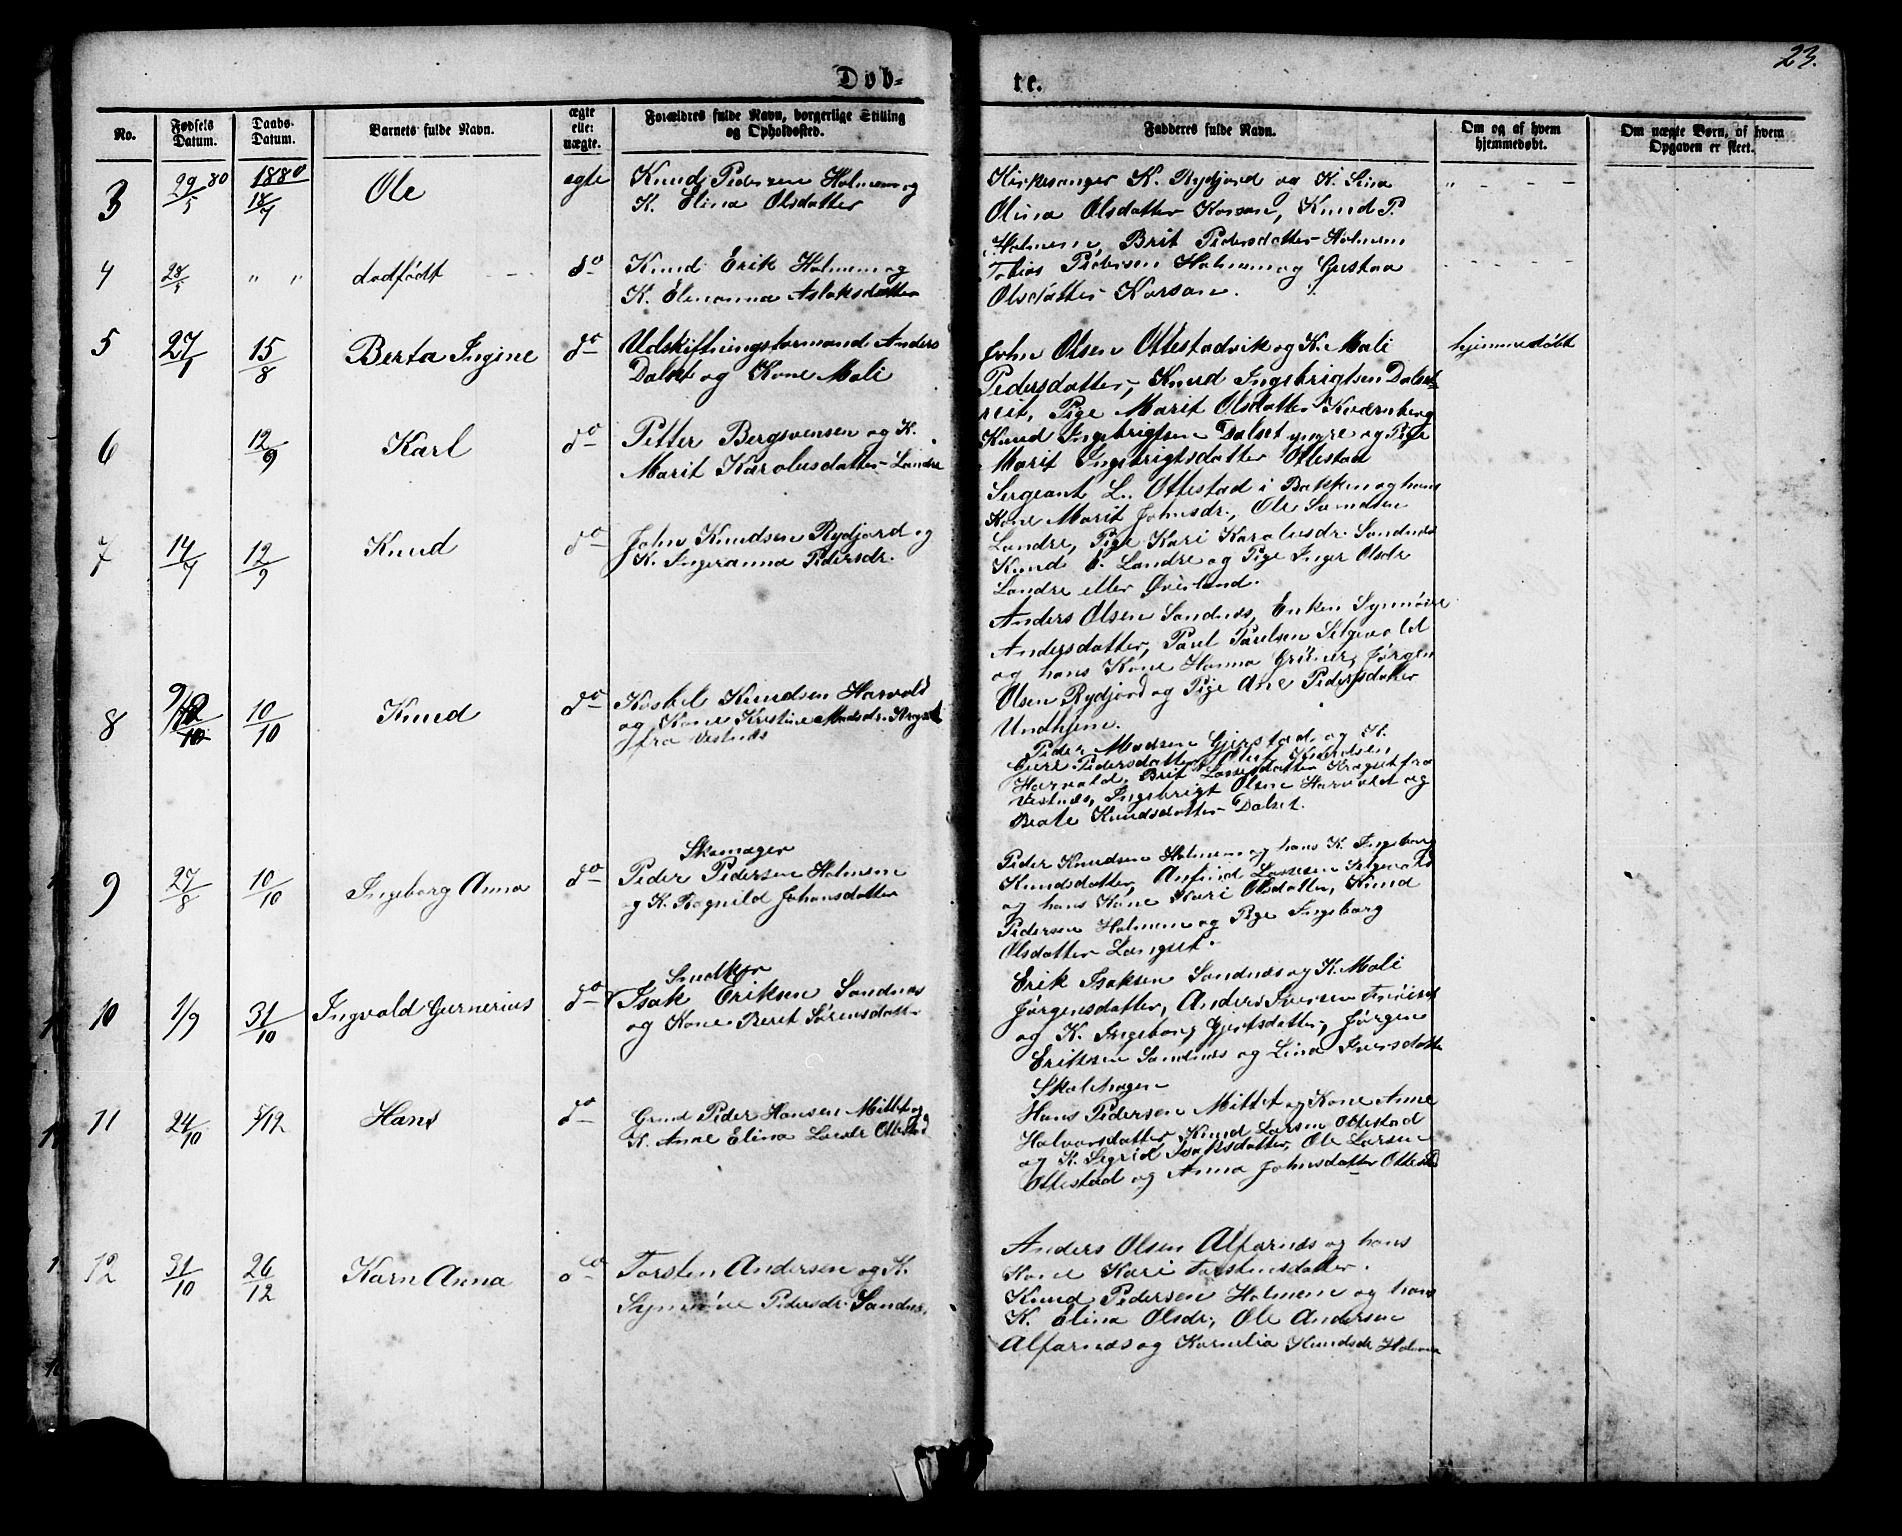 23.
Døb-
te.
No.
Fødsels Datum.
Daabs-Datum.
Barnets fulde Navn.
ægte eller uægte.
Forældres fulde Navn, borgerlige Stilling og Opholdssted.
Fadderes fulde Navn.
Om og af hvem hjemmedøbt.
Om uægte Børn, af hvem Opgaven er skeet.
3
29/5 80
1880 18/7
Ole
egte
Knud Pedersen Holmem og
K. Elina Olsdatter
Kirkesanger K. Rydjord og K. Lina
Olina Olsdatter Korsan, Knud P.
Holmem, Brit Pedersdatter Holmem
4
dødfødt
do
Knud Erik Holmem og
K. Elenanna Aslaksdatter
Tobias Pedersen Holmem og Gustaa
Olsdatter Korsan.
5
27/7
15/8
Berta Ingine
do
Udskiftningsformand Anders
Dalset og Kone Mali
John Olsen Ottestadvik og K. Mali
Pedersdatter, Knud Ingebrigtsen Dalset
Pige Marit Olsdatter Kvernberg
Knud Ingebrigtsen Dalset yngre og Pige
Marit Ingebrigtsdatter Ottestad
hjemmedøbt
6
12/9
Karl
do
Petter Bergsvensen og K.
Marit Karolusdatter Landre
Sergeant L. Ottestad i Bakken og hans
Kone Marit Johnsdr., Ole
Landre, Pige Kari Karolusdr. Sandnæs
Knud Landre og Pige Inger Olsdr
Landre eller Øverland.
7
14/7
12/9
Knud
do
John Knudsen Rydjord og
K. Ingeranna Pedersdr.
Anders Olsen Sandnæs, Enken Synnøve
Andersdatter, Paul Paulsen Selgevold
og hans Kone Hanna Grüner, Jørgen
Olsen Rydjord og Pige Ane Pedersdatter
Undhjem.
8
10/10
Knud
do
Knudsen Harvold
og Kone Kristine Madsdr.
fra Vestnæs
Peder Madsen Gjerstad og K.
Guri Pedersdatter, Knudsen
Harvold, Brit Lassesdatter fra
Vestnæs, Ingebrigt Olsen Harvold og
Beate Knudsdatter Dalset.
9
27/8
10/10
Ingeborg Anna
do
Skomager
Peder Pedersen Holmem
og K. Ragnild Johansdatter
Peder Knudsen Holmem og hans K. Ingeborg
Knudsdatter, Anfind Lassesen Selgevold
og hans Kone Kari Olsdatter, Knud
Pedersen Holmem og Pige Ingeborg
Olsdatter Langset.
10
1/9
31/10
Ingvald Gurnerius
do
Snedker
Isak Eriksen Sandnæs
og Kone Beret Sørensdatt-
Erik Isaksen Sandnæs og K. Mali
Jørgensdatter, Anders Iversen
og K. Ingeborg Gjertsdatter, Jørgen
Eriksen Sandnæs og Lina Iversdatter
Skolhagen
11
24/10
5/12
Hans
do
Gmd Peder Hansen Mittet og
K. Anne Elina Larsdr Ottestad
Hans Pedersen Mittet og Kone Anne
Halvorsdatter, Knud Larsen Ottestad
og K. Sigrid Isaksdatter, Ole Larsen
Ottestad og Anna Johnsdatter Ottestad
12
31/10
26/12
Karn Anna
do
Torsten Andersen og K.
Synnøve Pedersdr. Sandnæs.
Anders Olsen Alfarnæs og hans
Kone Kari Torstensdatter.
Knud Pedersen Holmem og hans
K. Elina Olsdr, Ole Andersen
Alfarnæs og Kornelia Knudsdr Holmem